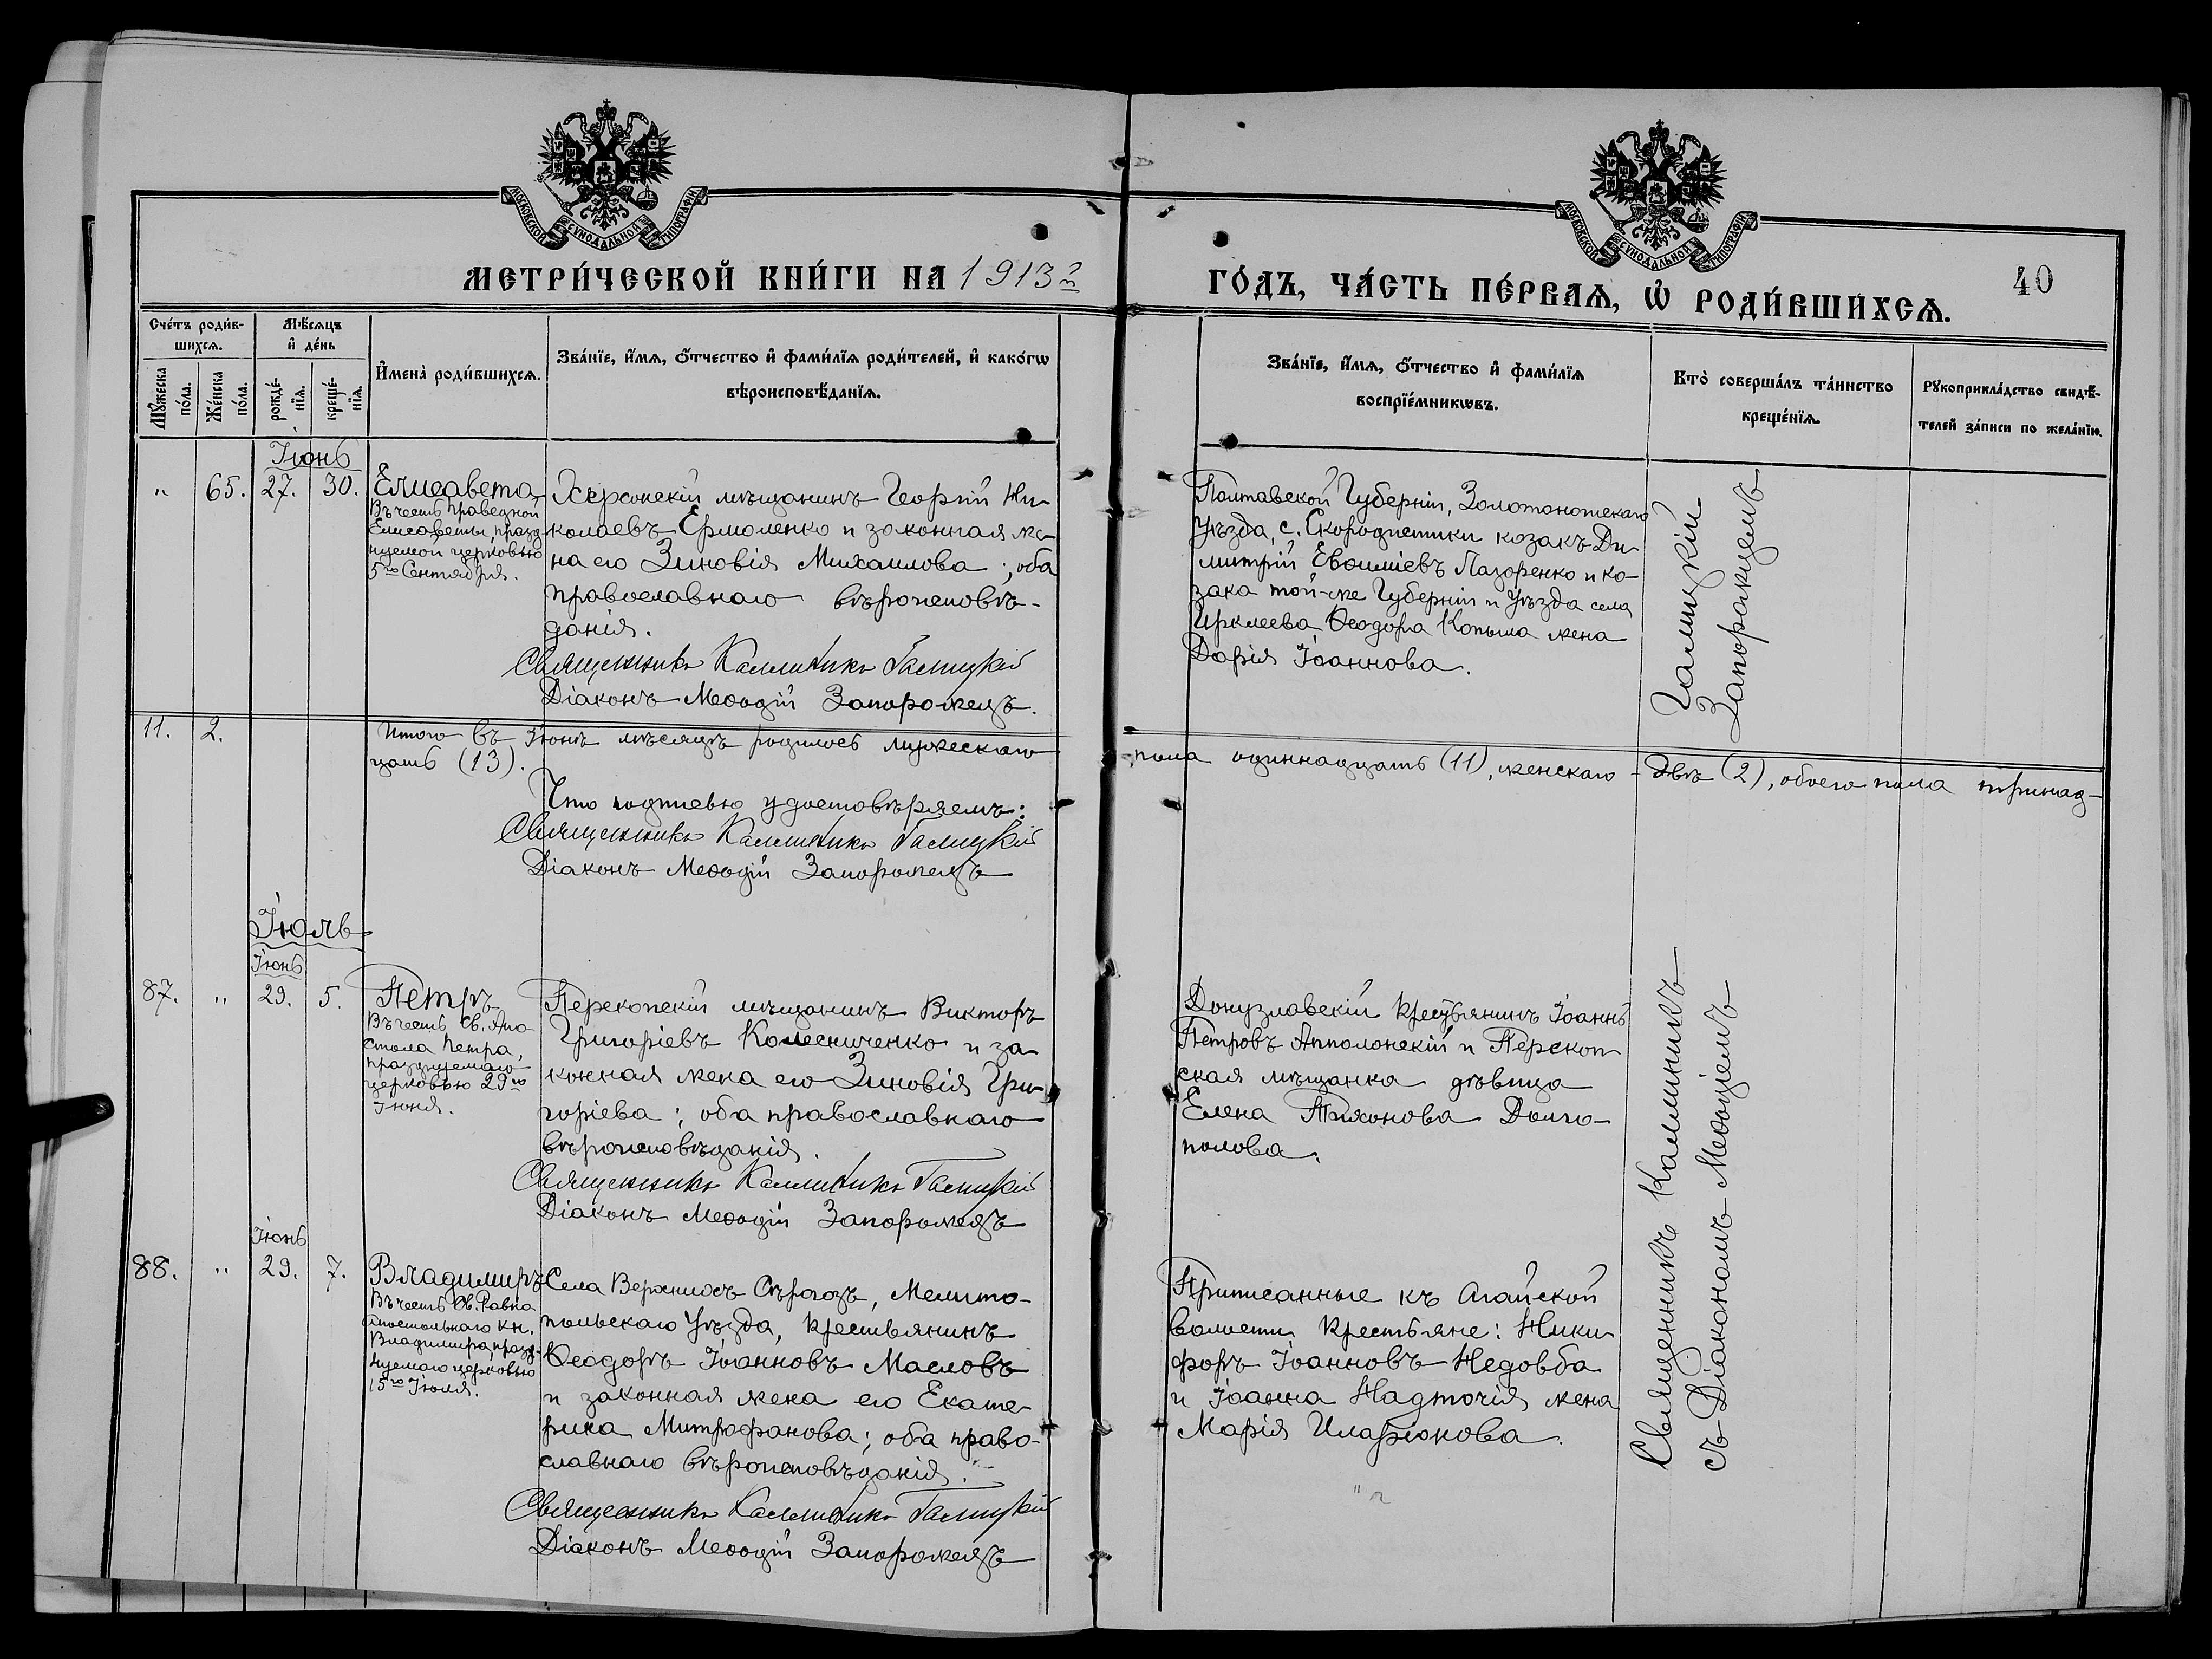 МОСКОВСКОЙ СѴНОДАЛЬНОЙ ТИПОГРАФІИ
МОСКОВСКОЙ СѴНОДАЛЬНОЙ ТИПОГРАФІИ
МЕТРИ́ЧЕСКОЙ КНИ́ГИ НА 1913 г.
ГО́ДЪ, ЧА́СТЬ ПЕ́РВАѦ, Ѽ РОДИ́ВШИХСѦ.
40
Сче́тъ роди́в-
шихсѧ.
Мꙋ́жеска
по́ла.
Же́нска
по́ла.
Мѣ́сѧцъ
и҆ де́нь
рожде́-
нїѧ.
креще́-
нїѧ.
И҆мена̀ роди́вшихсѧ.
Зва́нїе, и҆́мѧ, ѻ҆́тчество и҆ фами́лїѧ роди́телей, и҆ како́гѡ
вѣроисповѣ́данїѧ.
Зва́нїе, и҆́мѧ, ѻ҆́тчество и҆ фами́лїѧ
воспрїе́мникѡвъ.
Кто̀ соверша́лъ та́инство
креще́нїѧ.
Рꙋкоприкла́дство свидѣ́-
телей за́писи по жела́нїю.
Іюнь
" 65. 27. 30.
Елисавета
Въ честь праведной
Елисаветы, празд-
нуемой церковью
5го Сентября.
Херсонскій мѣщанинъ Георгій Ни-
колаевъ Ермоленко и законная же-
на его Зиновія Михаилова; оба
православнаго вѣроисповѣ-
данія.
Священникъ Каллиникъ Галицкій
Діаконъ Меѳодій Запорожецъ.
Полтавской Губерніи, Золотоношскаго
Уѣзда, с. Скородистики козакъ Ди-
митрій Евѳиміевъ Лазоренко и ко-
зака той-же Губерніи и Уѣзда села
Ирклеева Ѳеодора Копыла жена
Дарія Іоаннова.
Галицкій
Запорожцемъ
11. 2.
Итого въ Іюнѣ мѣсяцѣ родилось мужескаго
пола одиннадцать (11), женскаго - двѣ (2), обоего пола тринад-
цать (13).
Что подписью удостовѣряемъ:
Священникъ Каллиникъ Галицкій
Діаконъ Меѳодій Запорожецъ
Іюль
Іюнь
87. " 29. 5.
Петръ
Въ честь Св. Апо-
стола Петра,
празднуемаго
церковью 29го
Іюня.
Перекопскій мѣщанинъ Викторъ
Григоріевъ Колесниченко и за-
конная жена его Зиновія Гри-
горіева; оба православнаго
вѣроисповѣданія.
Священникъ Каллиникъ Галицкій
Діаконъ Меѳодій Запорожецъ
Донузлавскій крестьянинъ Іоаннъ
Петровъ Апполонскій и Перекоп-
ская мѣщанка дѣвица
Елена Тихонова Долго-
полова.
Священникъ Каллиникъ
съ Діакономъ Меѳодіемъ
Іюнь
88. " 29. 7.
Владимиръ
Въ честь Св. Равно-
апостольнаго Кн.
Владимира, празд-
нуемаго церковью
15го Іюля.
Села Верхнихъ Сѣрогозъ, Мелито-
польскаго Уѣзда, крестьянинъ
Ѳеодоръ Іоанновъ Масловъ
и законная жена его Екате-
рина Митрофанова; оба право-
славнаго вѣроисповѣданія.
Священникъ Каллиникъ Галицкій
Діаконъ Меѳодій Запорожецъ
Приписанные къ Агайской
волости крестьяне: Ники-
форъ Іоанновъ Недовба
и Іоанна Надточія жена
Марія Иларіонова.